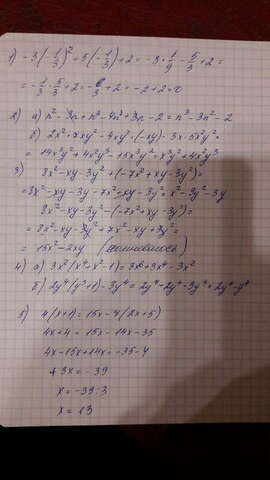 1) -3(-1/3)² + 5(-1/3) + 2 = -3·1/9 - 5/3 + 2 =
= -1/3 - 5/3 + 2 = -6/3 + 2 = -2 + 2 = 0
2) а) n² - 3n + n³ - 4n² + 3n - 2 = n³ - 3n² - 2
б) 2x²·7xy² - 4xy²·(-xy) - 3x·5x²y² =
= 14x³y² + 4x²y³ - 15x³y² = x³y² + 4x²y³
3) 8x² - xy - 3y² + (-7x² + xy - 3y²) =
= 8x² - xy - 3y - 7x² + xy - 3y² = x² - 3y² - 3y
8x² - xy - 3y² - (-7x² + xy - 3y²) =
= 8x² - xy - 3y² + 7x² - xy + 3y² =
= 15x² - 2xy
4) а) 3x²(x⁴ - x² - 1) = 3x⁶ + 3x⁴ - 3x²
б) 2y⁴(y³ + 1) - 3y⁴ =
5) 4(x+1) = 15x - 7(2x+5)
4x + 4 = 15x - 14x - 35
4x - 15x + 14x = -35 - 4
3x = -39
x = -39:3
x = 13